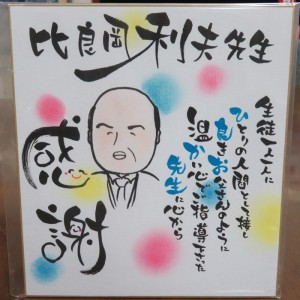 比良岡利夫先生
生徒一人一人に
ひとりの人間として接し
良きお父さんのように
温かい心でご指導下さった
先生に心から
感謝